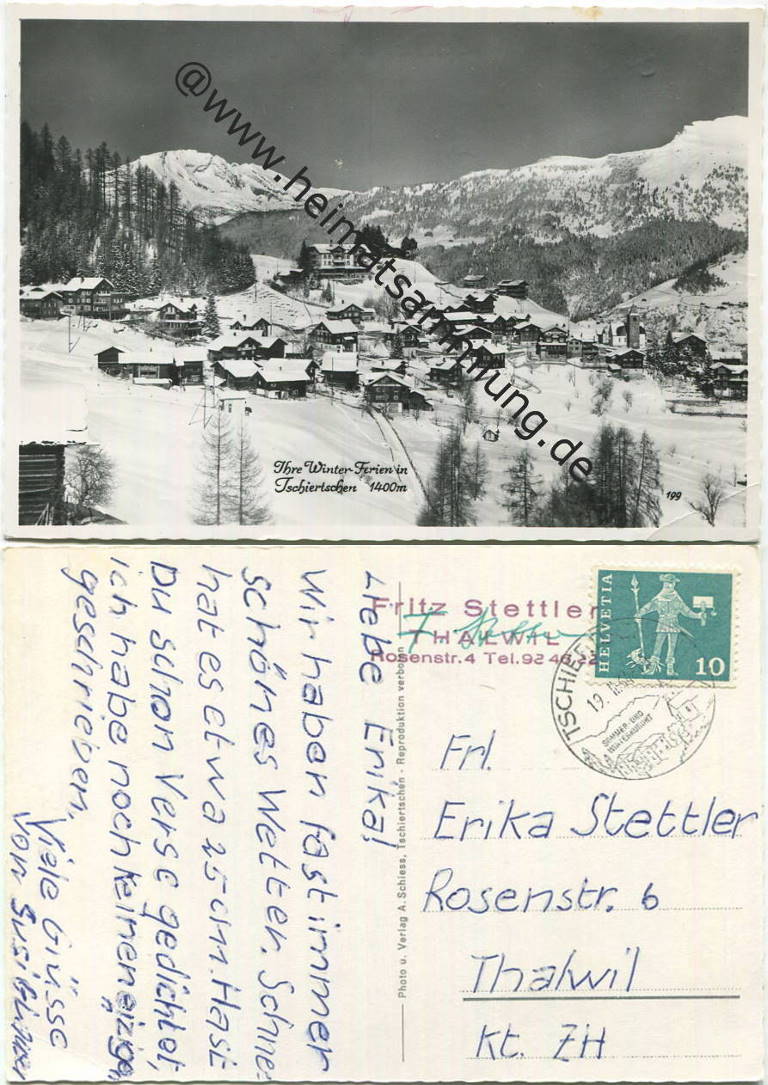 @www.heimatsammlung.de
Ihre Winter-Ferien in
Tschiertschen 1400m
199
Liebe Erika!
Wir haben fast immer
schönes Wetter. Schne-
hat es etwa 25 cm. Hast
Du schon Verse gedichtet,
ich habe noch keinen eizigen
geschrieben.
Viele Grüsse
von Susi
Photo u. Verlag A. Schiess, Tschiertschen - Reproduktion verboten
Fritz Stettler
THALWIL
Rosenstr. 4 Tel. 92 46 22
HELVETIA
10
TSCHIE
19.
SOMMER- UND
WINTERKURORT
Frl.
Erika Stettler
Rosenstr. 6
Thalwil
Kt. ZH